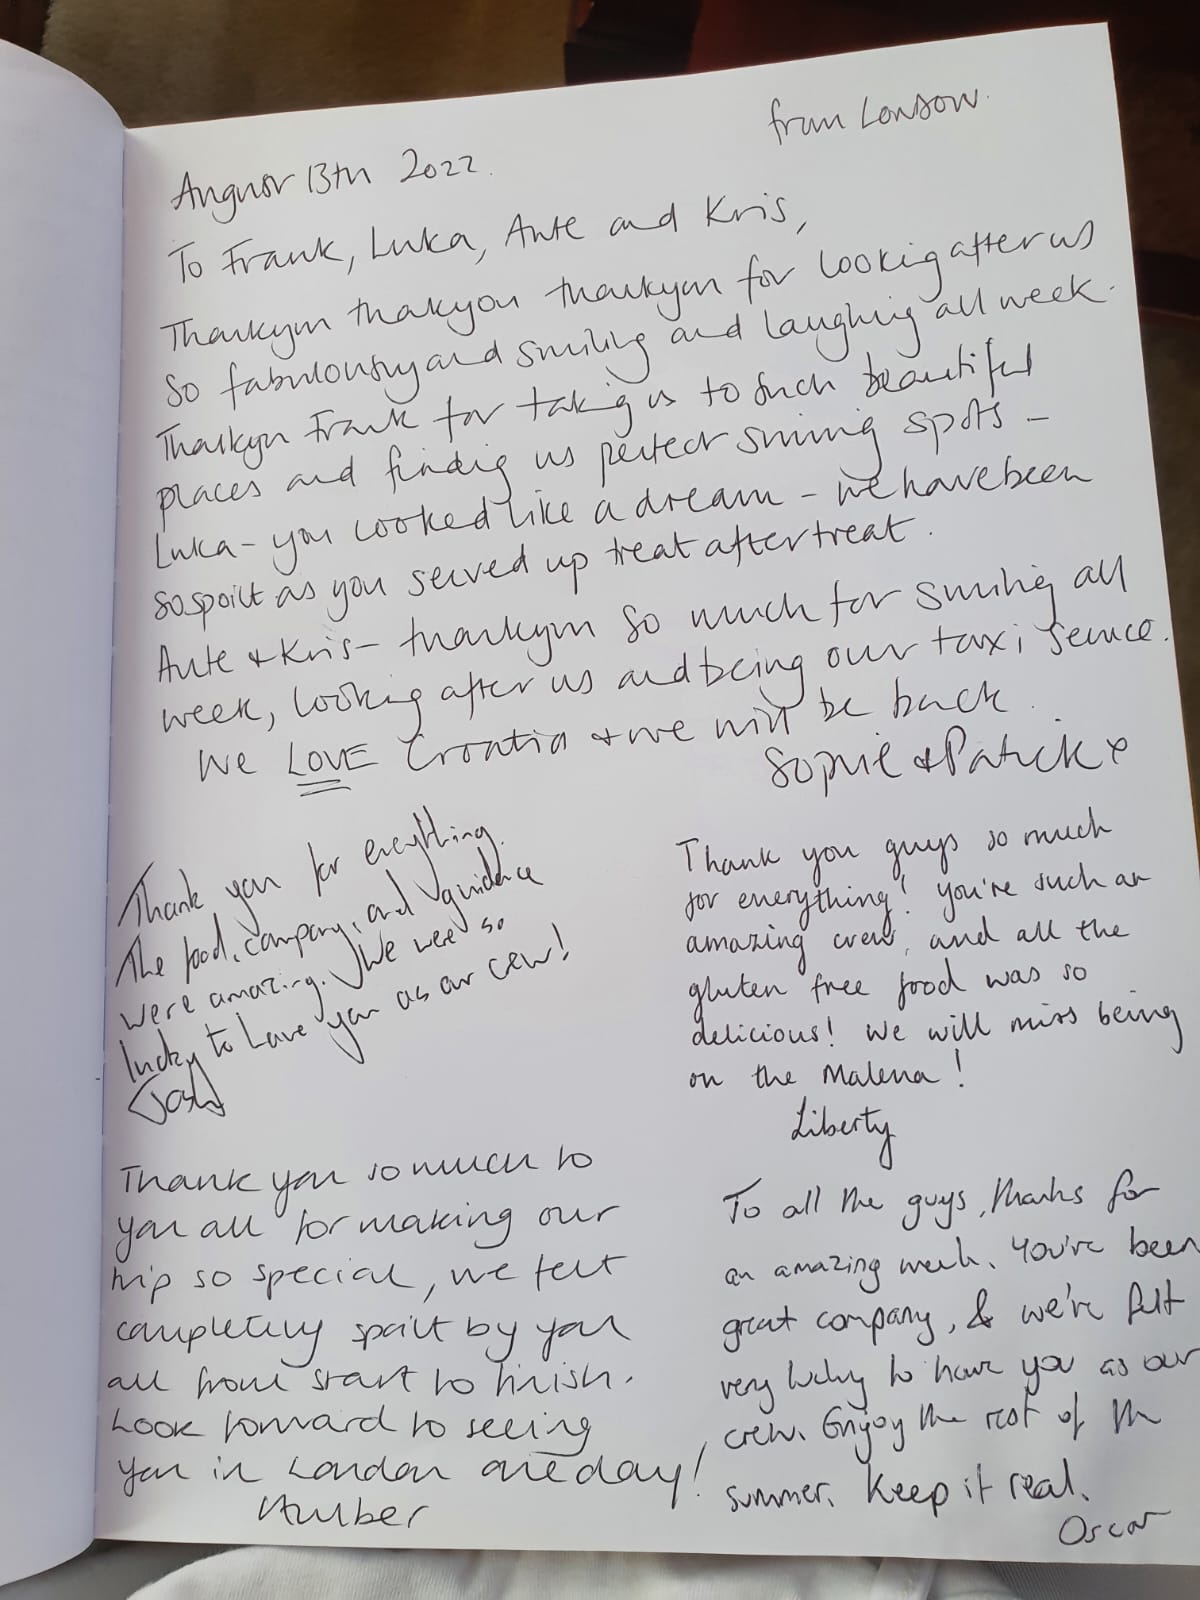 from London.
August 13th 2022.
To Frank, Luka, Ante and Kris,
Thankyou thakyou thankyou for looking after us
so fabulously and smiling and laughing all week.
Thankyou Frank for taking us to such beautiful
places and finding us perfect swimming spots –
Luka – you cooked like a dream – we have been
so spoilt as you served up treat after treat.
Ante & Kris – thankyou so much for smiling all
week, looking after us and being our taxi service.
We LOVE Croatia & we will be back.
Sophie & Patrick x
Thank you for everything.
The food, company, and guidance
were amazing. We were so
lucky to have you as our crew!
Josh
Thank you guys so much
for everything! You're such an
amazing crew, and all the
gluten free food was so
delicious! We will miss being
on the Malena!
Liberty
Thank you so much to
you all for making our
trip so special, we felt
completely spoilt by you
all from start to finish.
Look forward to seeing
you in London one day!
Amber
To all the guys, thanks for
an amazing week. You've been
great company, & we've felt
very lucky to have you as our
crew. Enjoy the rest of the
summer. Keep it real.
Oscar